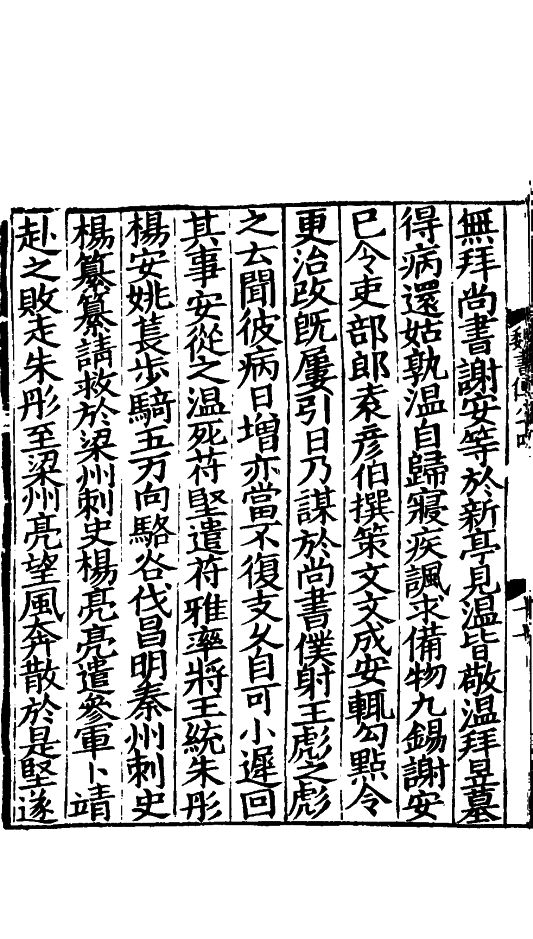 無拜尚書謝安等於新亭見温皆敬温拜昱墓
得病還姑孰温自歸寢疾諷求備物九錫謝安
已令吏部郎袁彦伯撰策文文成安輒勾點令
更治改旣屢引日乃謀於尚書僕射王彪之彪
之云聞彼病日增亦當不復支久自可小遲回
其事安從之温死苻堅遣苻雅率將王統朱彤
楊安姚萇步騎五万向駱谷伐昌明秦州刺史
楊纂纂請救於梁州刺史楊亮亮遣參軍卜靖
赴之敗走朱彤至梁州亮望風奔散於是堅遂